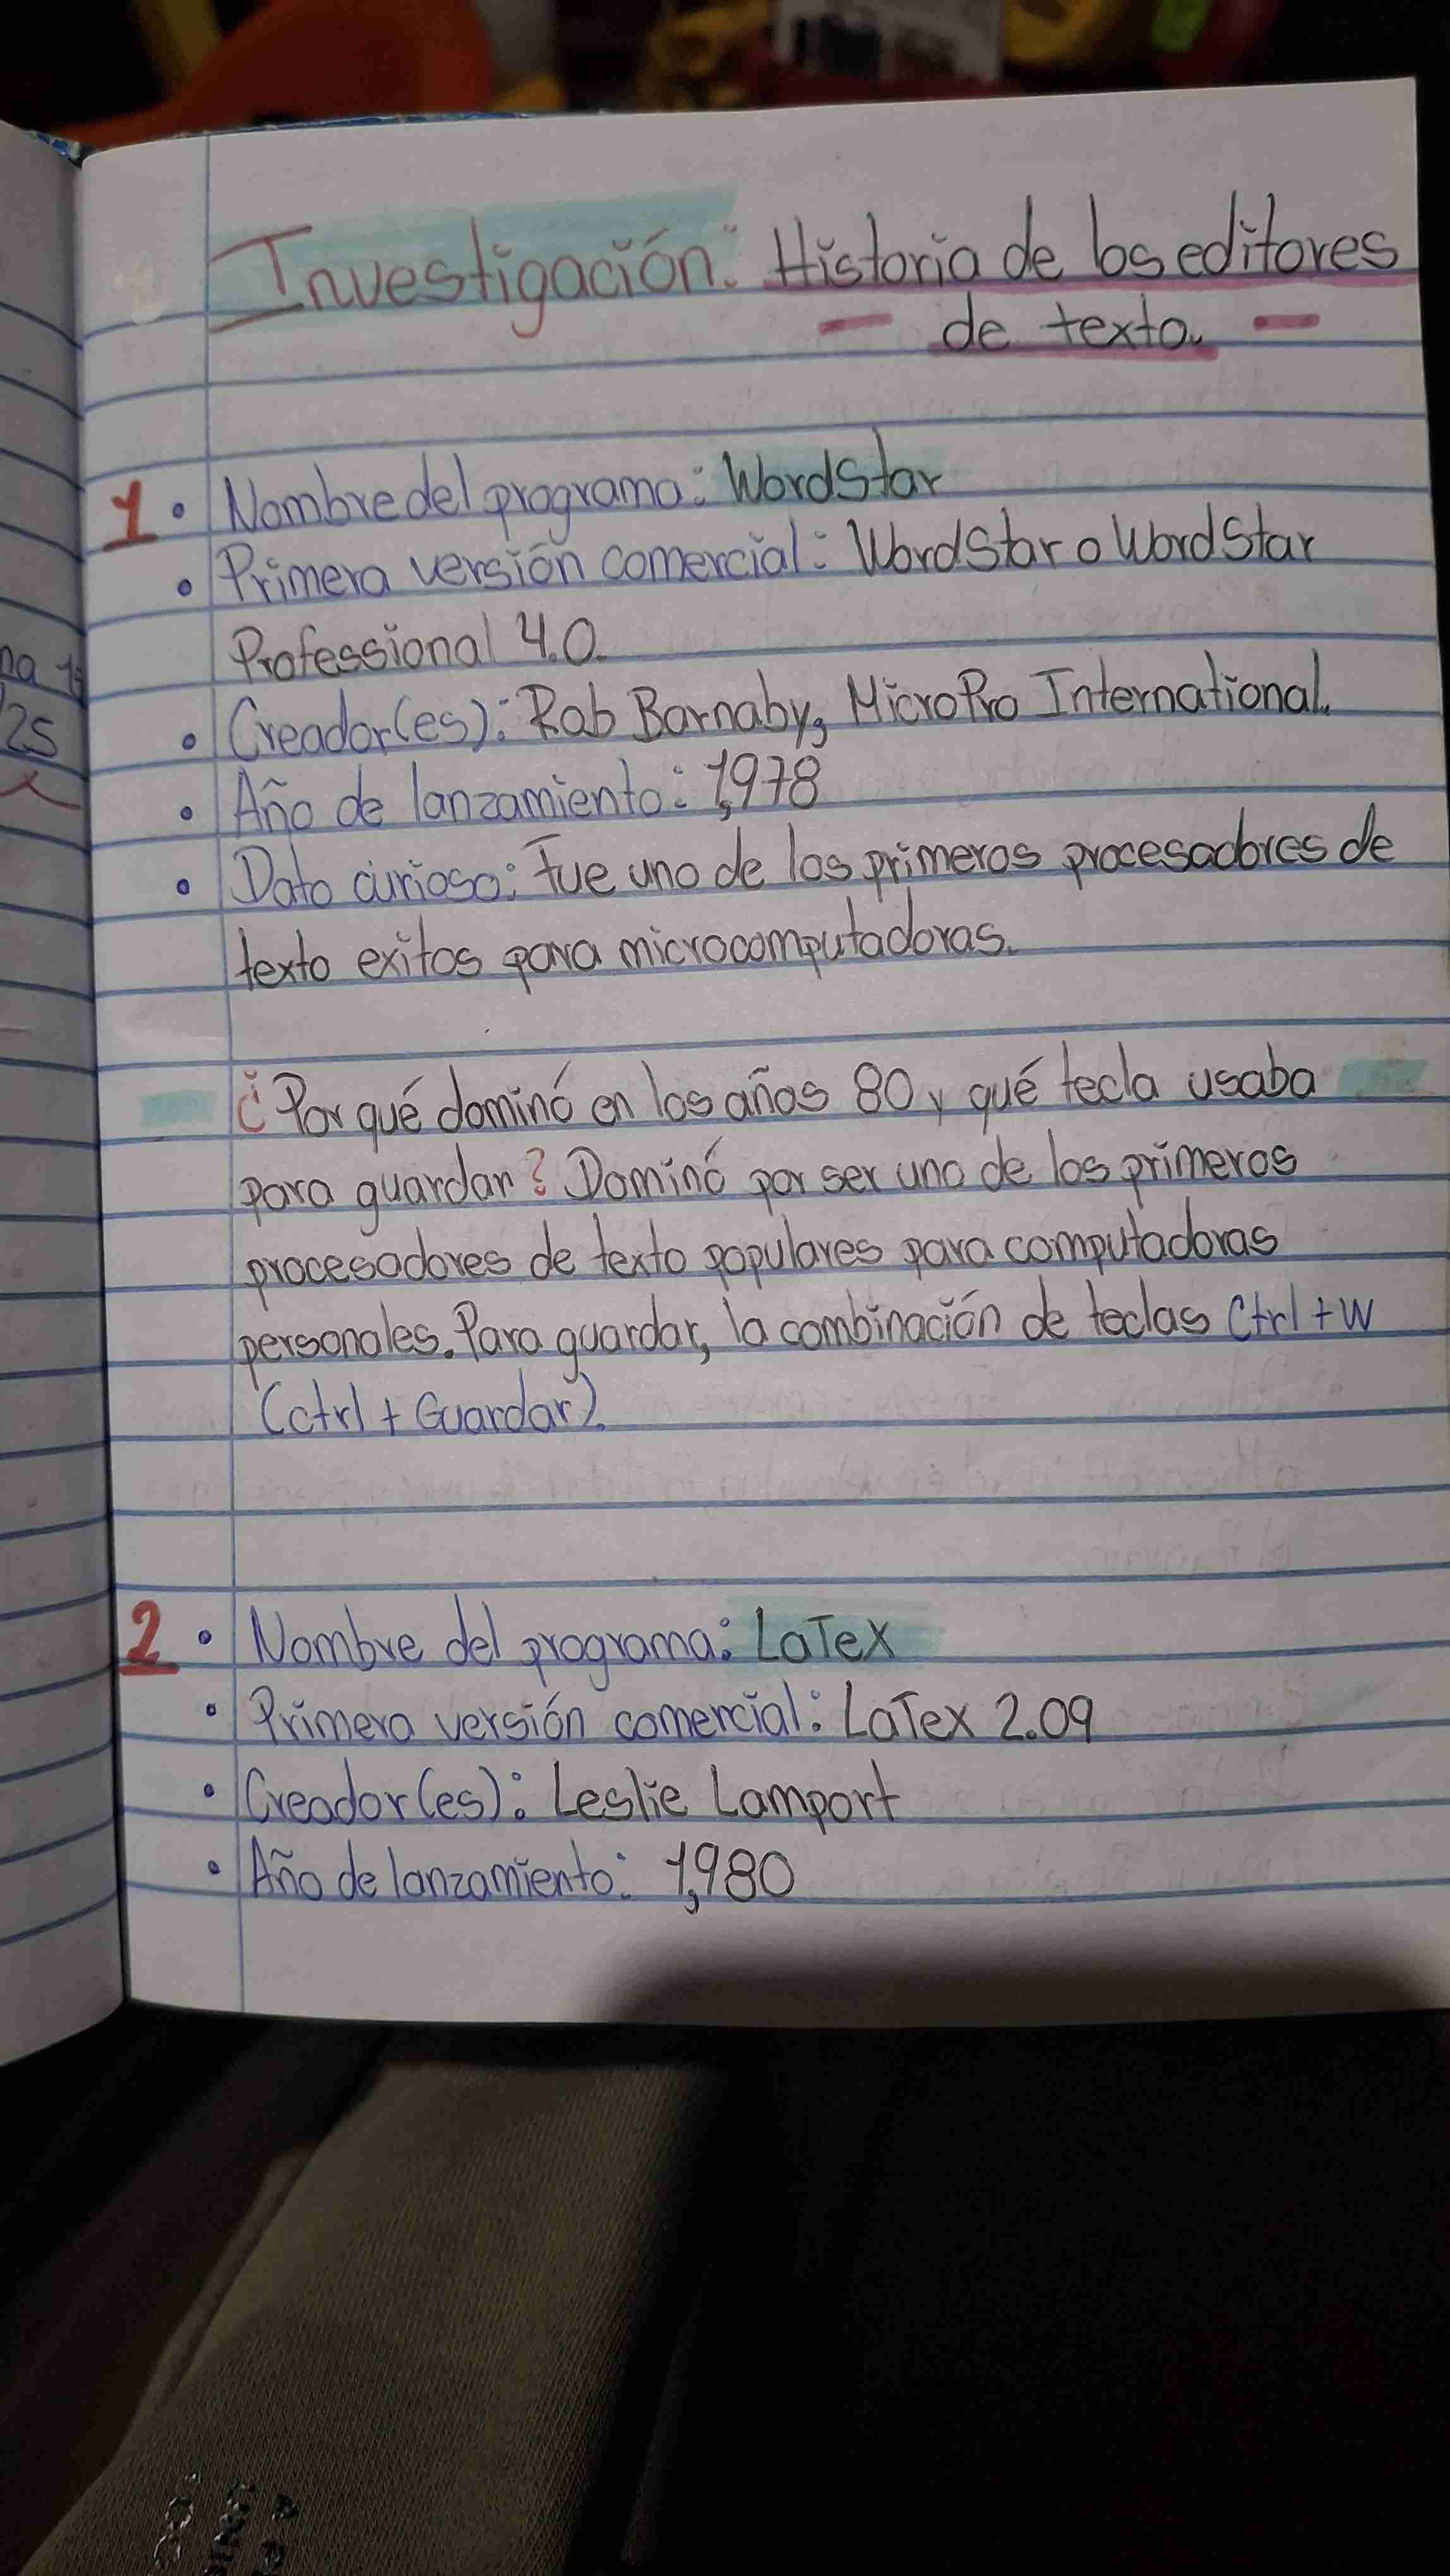 Investigación: Historia de los editores
de texto.
1 • Nombre del programa: WordStar
• Primera versión comercial: WordStar o WordStar
Professional 4.0.
• Creador(es): Rob Barnaby, MicroPro International.
• Año de lanzamiento: 1,978
• Dato curioso: Fue uno de los primeros procesadores de
texto exitos para microcomputadoras.
¿Por qué dominó en los años 80 y qué tecla usaba
para guardar? Dominó por ser uno de los primeros
procesadores de texto populares para computadoras
personales. Para guardar, la combinación de teclas Ctrl + W
(ctrl + Guardar).
2 • Nombre del programa: LaTex
• Primera versión comercial: LaTex 2.09
• Creador(es): Leslie Lamport
• Año de lanzamiento: 1,980